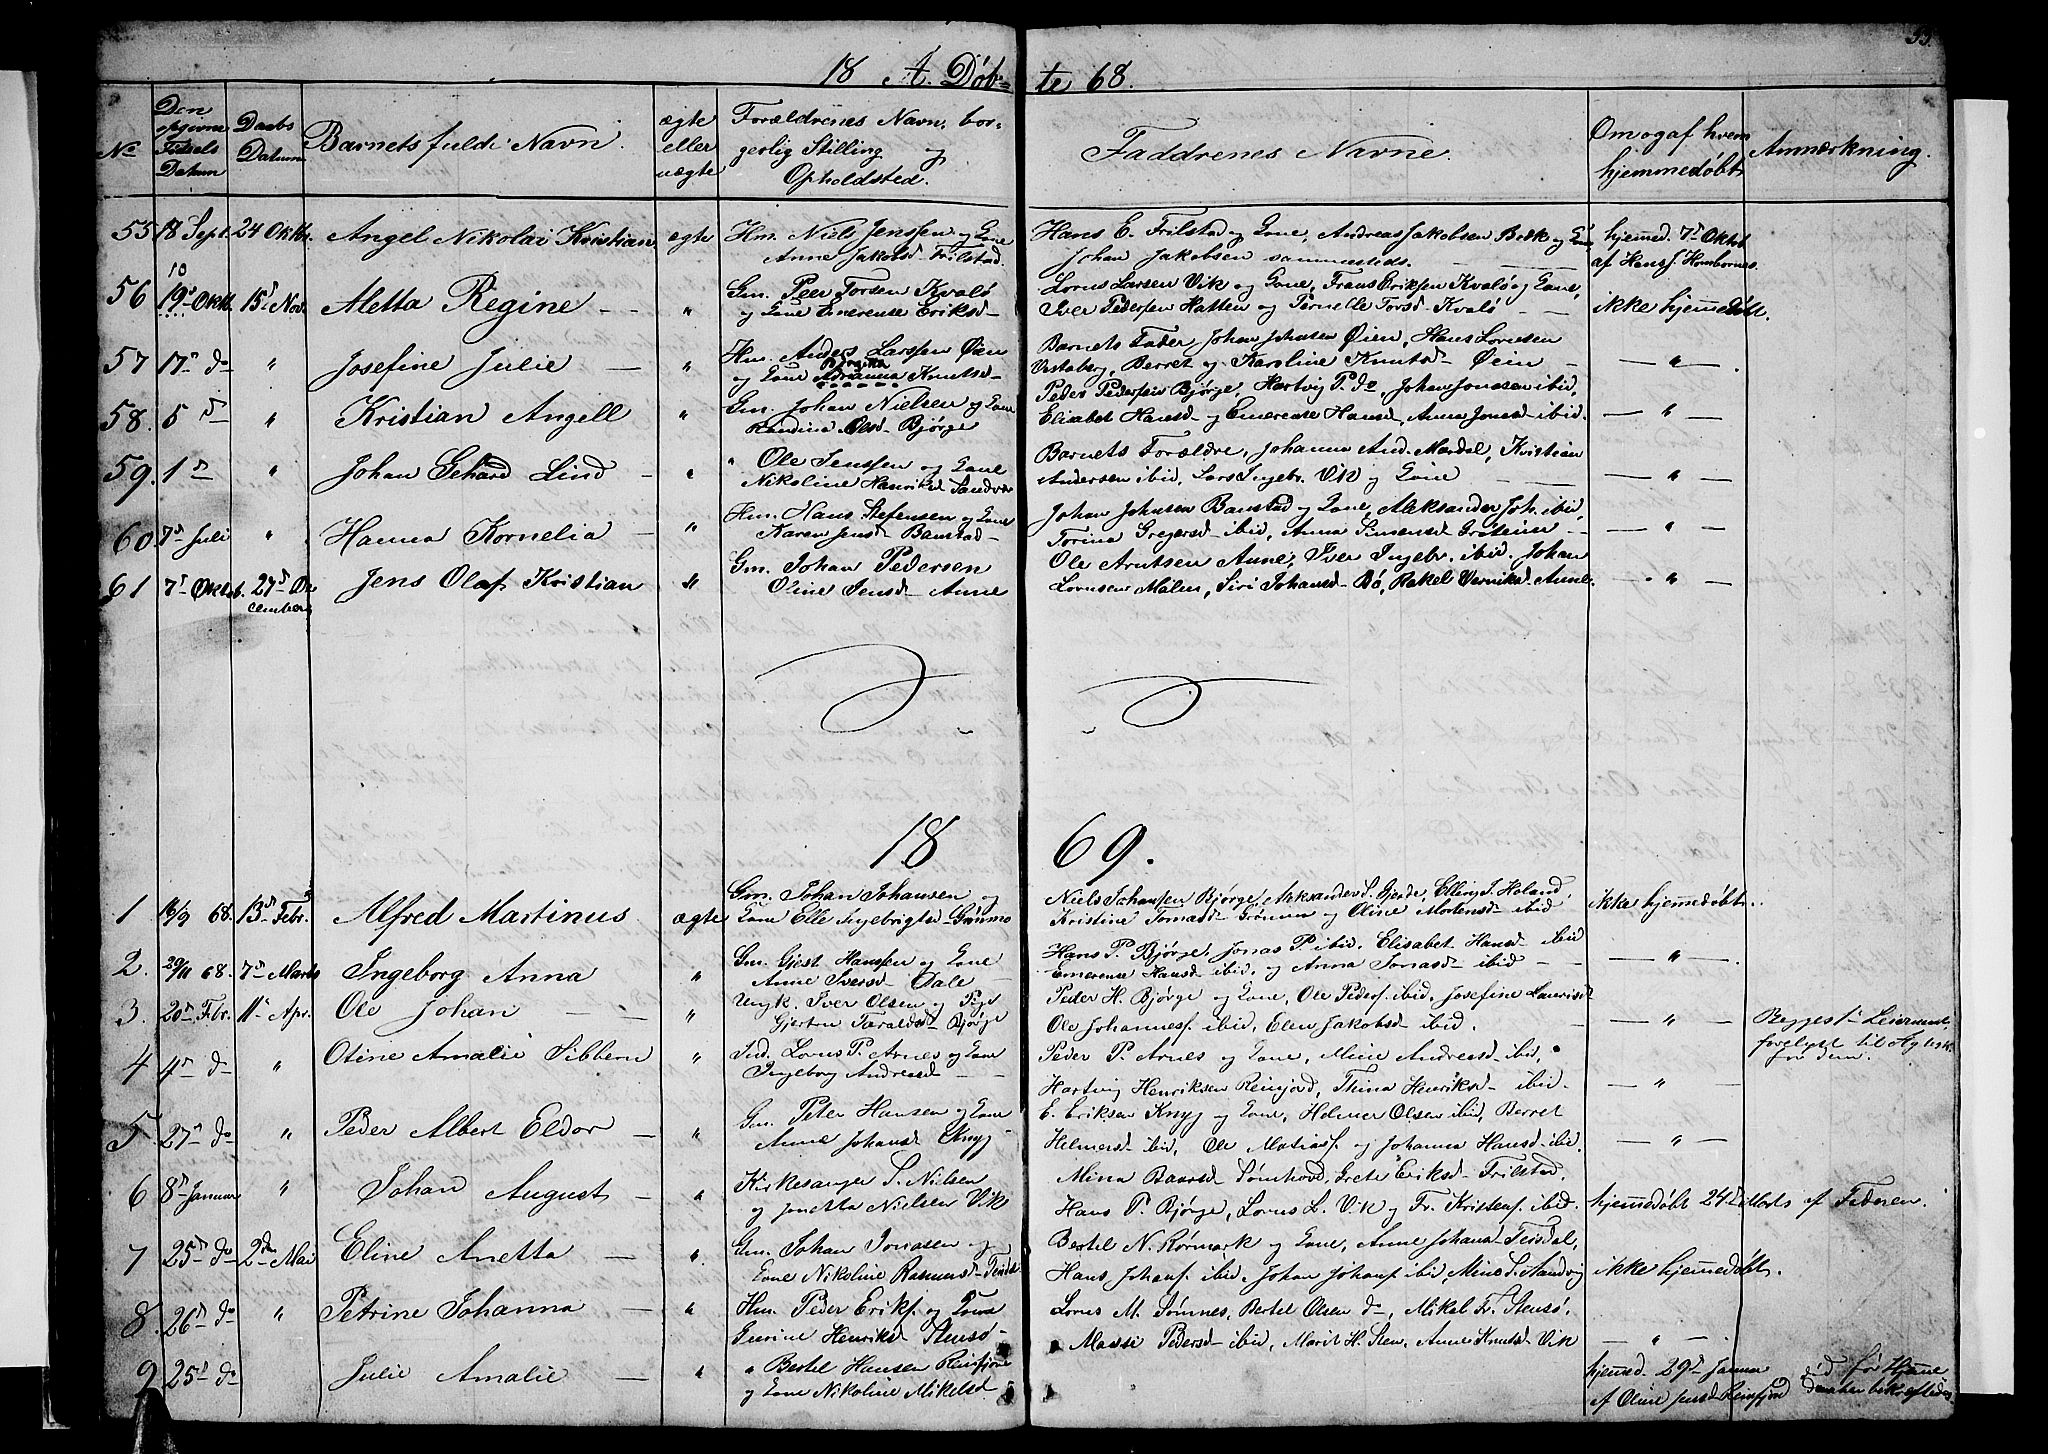 18 A. Døb- te 68.
No
Den opgivne Fødsels Datum
Daabs Datum
Barnets fulde Navn.
ægte eller uægte
Forældrenes Navn, borgerlig Stilling og Opholdsted.
Faddrenes Navne.
Om og af hvem hjemmedøbt
Anmærkning.
55 18 Sept. 24 Oktbr. Angel Nikolai Kristian ægte Hm. Niels Jenssen og Kone Anne Jakobsd. Frilstad.
Hans E. Frilstad og Kone, Andreas Jakobsen Bek og Kone, Johan Jakobsen sammesteds. hjemmed. 7d Oktob. af Hans J. Hombornes.
56 10 19d Oktb. 15d Nov. Aletta Regine " Gm. Peer Torsen Kvalø og Kone Emerense Eriksd
Lorns Larsen Vik og Kone, Frans Eriksen Kvalø og Kone, Iver Pedersen Hatten og Pernelle Torsd Kvalø ikke hjemmedøbt.
57 17d do " Josefine Julie " Hm. Anders Larssen Øien og Kone Adrianna Knutsd
Barnets Fader, Johan Johnsen Øien, Hans Lornsen Vestaberg, Berret og Karoline Knutsd Øien — " —
58. 5d " Kristian Angell " Gm. Johan Nielsen og Kone Randina Olsd Bjørge
Peder Pedersen Bjørge, Hartvig P. do, Johan Jonassen ibid, Elisabet Hansd og Emerense Hansd, Anna Jonasd ibid. — " —
59. 1d " Johan Gehard Lind " " Ole Jenssen og Kone Nikoline Henriksd Sandvær
Barnets Forældre, Johanna And. Mardal, Kristian Andersen ibid, Lars Ingebr. Vik og Kone — " —
60 7d Juli " Hanna Kornelia " Hm. Hans Stefensen og Kone Karen Jensd Banstad
Johan Johnsen Banstad og Kone, Aleksander Joh. ibid, Torina Gregersd ibid, Anna Simensd — " —
61 7d Oktob. 27d December Jens Olaf Kristian " Gm. Johan Pedersen Oline Jensd Aune
Ole Arntsen Aune, Iver Ingebr. ibid. Johan Lornsen Malm, Siri Johansd Bø, Rakel Aune. — " —
18 69.
1 16/9 68. 13d Febr. Alfred Martinus ægte Gm. Johan Johansen og Kone Elle Ingebrigtsd Grønmo
Niels Johanssen Bjørge, Aleksander S. Gjerde, Elling J. Holand, Kristine Tomasd Grønmo og Oline Mortensd ibid ikke hjemmedøbt.
2. 29/11 68. 7d Marts Ingeborg Anna " Gm. Gjest Hanssen og Kone Anne Iversd Dale
Hans P. Bjørge, Jonas P. ibid, Elisabet Hansd ibid Emerense Hansd ibid, og Anna Jonasd ibid — " —
3. 20d Febr. 11d Apr. Ole Johan " Ungk. Iver Olsen og Pige Gjertru Taraldsd Bjørge
Peder H. Bjørge og Kone, Ole Peders. ibid. Josefine Lauritsd Ole Johannes. ibid, Elen Jakobsd ibid. — " — Begges 1ste Leiermaal,
4 4d do " Otine Amalie Sibbern " Ind. Lorns P. Arnes og Kone Ingeborg Andreasd
Peder P. Arnes og Kone, Mine Andreasd ibid, Hartvig Henriksen Reinfjord, Thina Henriksd ibid. — " —
5. 27d do " Peder Albert Eldor " Gm. Peter Hansen og Kone Anne Johansd Knyg
E. Eriksen Knyg og Kone, Helmer Olsen ibid, Berret Helmersd ibid, Ole Matias. og Johanna Hansd ibid. — " —
6 8d Januar " Johan August " Kirkesanger S. Nielsen og Jonetta Nielsen Vik
Mina Baarsd Sømhovd, Grete Eriksd Frilstad, Hans P. Bjørge, Lorns L. Vik og Fr. Kristens. ibid. hjemmedøbt 24d Marts af Faderen.
7 25d do 2den Mai Eline Anetta " Gm. Johan Jonasen og Kone Nikoline Rasmusd
Bertel N. Rørmark og Kone, Anne Johansd Feisdal, Hans Johans. ibid, Johan Johans. ibid ikke hjemmedøbt.
8. 26d do " Petrine Johanna " Hm. Peder Eriks. og Kone Gurine Henriksd Stensø
Lorns M. Sømnes, Bertel Olsen do, Mikel Fr. Stensø, Massi Pedersd ibid, Marit H. Sten, Anne Knutsd Vik — " —
9 25d do Julie Amalie " " Bertel Hansen Reinfjord og Kone Nikoline Mikelsd
hjemmed. 29d Januar af Oline Jensd Reinfjord